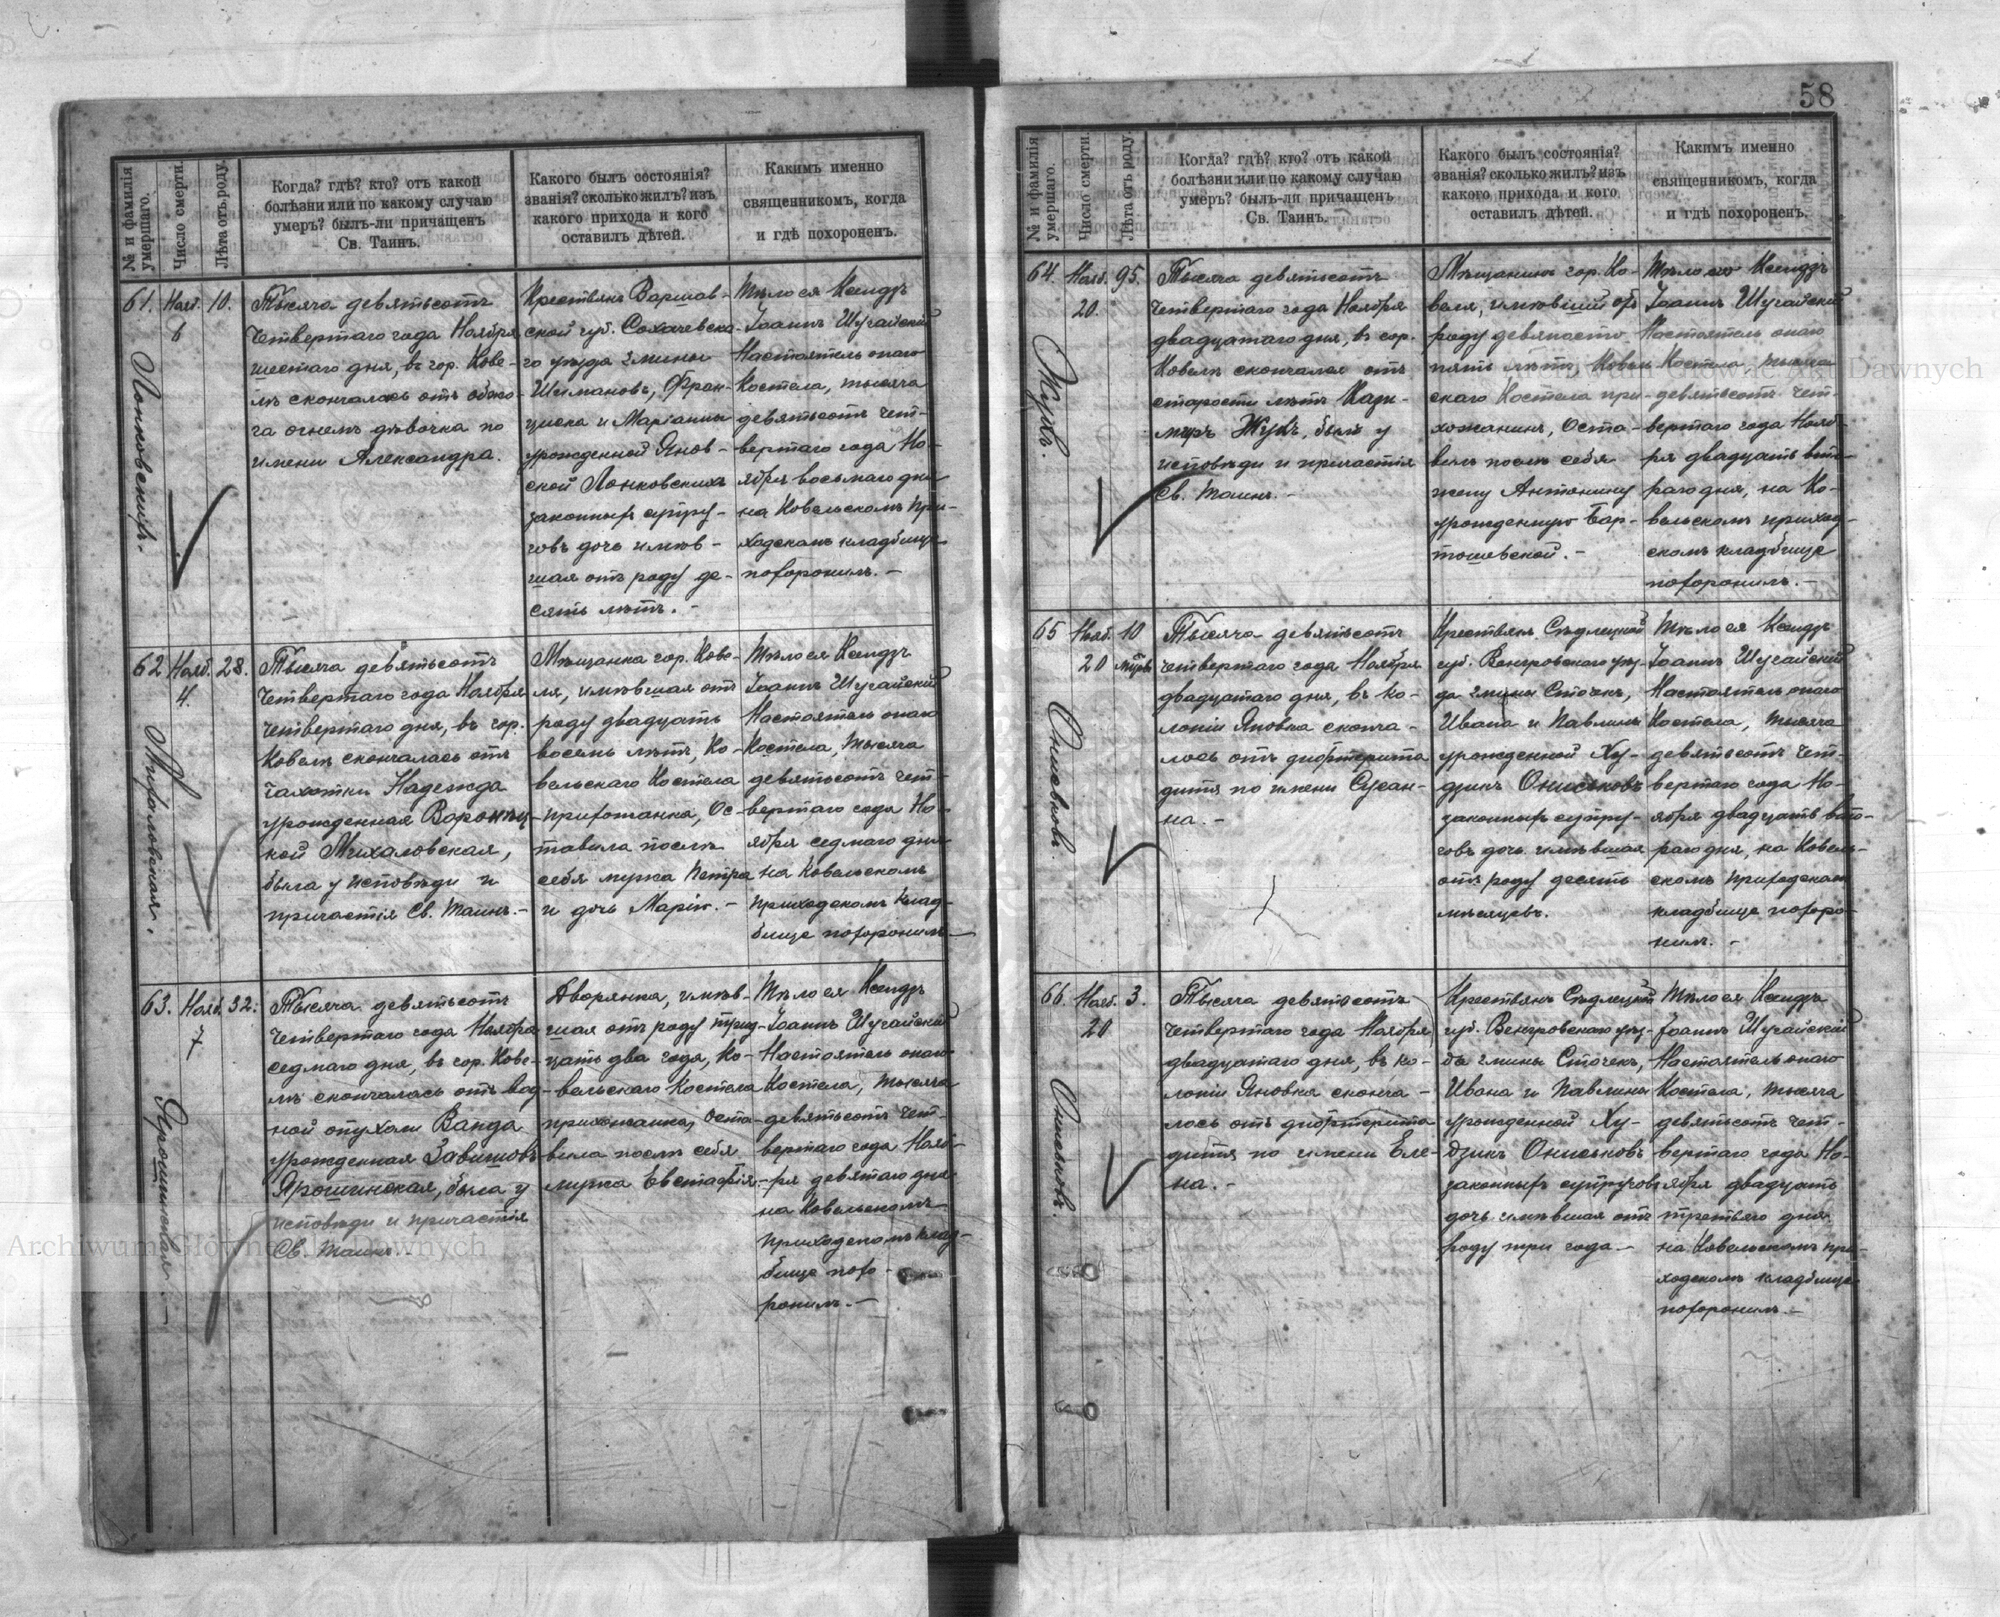 58
№ и фамилія умершаго.
Число смерти.
Лѣта отъ роду.
Когда? гдѣ? кто? отъ какой
болѣзни или по какому случаю
умеръ? былъ-ли причащенъ
Св. Таинъ.
Какого былъ состоянія?
званія? сколько жилъ? изъ
какого прихода и кого
оставилъ дѣтей.
Какимъ именно
священникомъ, когда
и гдѣ похороненъ.
61.
Нояб.
6
10.
Лонковскихъ.
Тысяча девятьсотъ
четвертаго года Ноября
шестаго дня, въ гор. Кове-
лѣ скончалась отъ обжо-
га огнемъ дѣвочка по
имени Александра.
Крестьянъ Варшав-
ской губ. Сохачевска-
го уѣзда гмины
Шимановъ, Фран-
циска и Маріанны
урожденной Янов-
ской Лонковскихъ
законныхъ супру-
говъ дочь имѣв-
шая отъ роду де-
сять лѣтъ. -
Тѣло ея Ксендзъ
Іоаннъ Шугайскій
Настоятель онаго
Костела, тысяча
девятьсотъ чет-
вертаго года Но-
ября восьмаго дня
на Ковельскомъ при-
ходскомъ кладбище
похоронилъ. -
62
Нояб.
4.
28.
Михаловская.
Тысяча девятьсотъ
четвертаго года Ноября
четвертаго дня, въ гор.
Ковелѣ скончалась отъ
чахотки Надежда
урожденная Ворониц-
кой Михаловская,
была у исповѣди и
причастія Св. Таинъ. -
Мѣщанка гор. Кове-
ля, имѣвшая отъ
роду двадцать
восемь лѣтъ, Ко-
вельскаго Костела
прихожанка, Ос-
тавила послѣ
себя мужа Петра
и дочь Марію. -
Тѣло ея Ксендзъ
Іоаннъ Шугайскій
Настоятель онаго
Костела, тысяча
девятьсотъ чет-
вертаго года Но-
ября седмаго дня
на Ковельскомъ
приходскомъ клад-
бище похоронилъ -
63.
Нояб.
7
32.
Ярошинская. -
Тысяча девятьсотъ
четвертаго года Ноября
седмаго дня, въ гор. Кове-
лѣ скончалась отъ вод-
ной опухоли Ванда
урожденная Завишовъ
Ярошинская, была у
исповѣди и причастія
Св. Таинъ.
Дворянка, имѣв-
шая отъ роду трид-
цать два года, Ко-
вельскаго Костела
прихожанка, Оста-
вила послѣ себя
мужа Евстафія. -
Тѣло ея Ксендзъ
Іоаннъ Шугайскій
Настоятель онаго
Костела, тысяча
девятьсотъ чет-
вертаго года Нояб-
ря девятаго дня
на Ковельскомъ
приходскомъ клад-
бище похо-
ронилъ. -
№ и фамилія умершаго.
Число смерти.
Лѣта отъ роду.
Когда? гдѣ? кто? отъ какой
болѣзни или по какому случаю
умеръ? былъ-ли причащенъ
Св. Таинъ.
Какого былъ состоянія?
званія? сколько жилъ? изъ
какого прихода и кого
оставилъ дѣтей.
Какимъ именно
священникомъ, когда
и гдѣ похороненъ.
64.
Нояб.
20.
95.
Жукъ.
Тысяча девятьсотъ
четвертаго года Ноября
двадцатаго дня, въ гор.
Ковелѣ скончался отъ
старости лѣтъ Кази-
миръ Жукъ, былъ у
исповѣди и причастія
Св. Таинъ. -
Мѣщанинъ гор. Ко-
веля, имѣвшій отъ
роду девяносто
пять лѣтъ, Ковель-
скаго Костела при-
хожанинъ, Оста-
вилъ послѣ себя
жену Антонину
урожденную Бар-
тошевской. -
Тѣло его Ксендзъ
Іоаннъ Шугайскій
Настоятель онаго
Костела тысяча
девятьсотъ чет-
вертаго года Нояб-
ря двадцать вто-
раго дня, на Ко-
вельскомъ приход-
скомъ кладбище
похоронилъ. -
65
Нояб.
20
10
мѣсяц.
Ониськовъ.
Тысяча девятьсотъ
четвертаго года Ноября
двадцатаго дня, въ ко-
лоніи Яновка сконча-
лось отъ дифтерита
дитя по имени Сусан-
на. -
Крестьянъ Сѣдлецкой
губ. Венгровскаго уѣз-
да гмины Сточекъ,
Ивана и Павлины
урожденной Ху-
дзикъ Ониськовъ
законныхъ супру-
говъ дочь имѣвшая
отъ роду десять
мѣсяцевъ.
Тѣло ея Ксендзъ
Іоаннъ Шугайскій
Настоятель онаго
Костела, тысяча
девятьсотъ чет-
вертаго года Но-
ября двадцать вто-
раго дня, на Ковель-
скомъ приходскомъ
кладбище похоро-
нилъ. -
66.
Нояб.
20
3.
Ониськовъ
Тысяча девятьсотъ
четвертаго года Ноября
двадцатаго дня, въ ко-
лоніи Яновка сконча-
лось отъ дифтерита
дитя по имени Еле-
на. -
Крестьянъ Сѣдлецкой
губ. Венгровскаго уѣз-
да гмины Сточекъ,
Ивана и Павлины
урожденной Ху-
дзикъ Ониськовъ
законныхъ супруговъ
дочь имѣвшая отъ
роду три года -
Тѣло ея Ксендзъ
Іоаннъ Шугайскій
Настоятель онаго
Костела, тысяча
девятьсотъ чет-
вертаго года Но-
ября двадцать
третьяго дня
на Ковельскомъ при-
ходскомъ кладбище
похоронилъ -
Archiwum Główne Akt Dawnych
Archiwum Główne Akt Dawnych